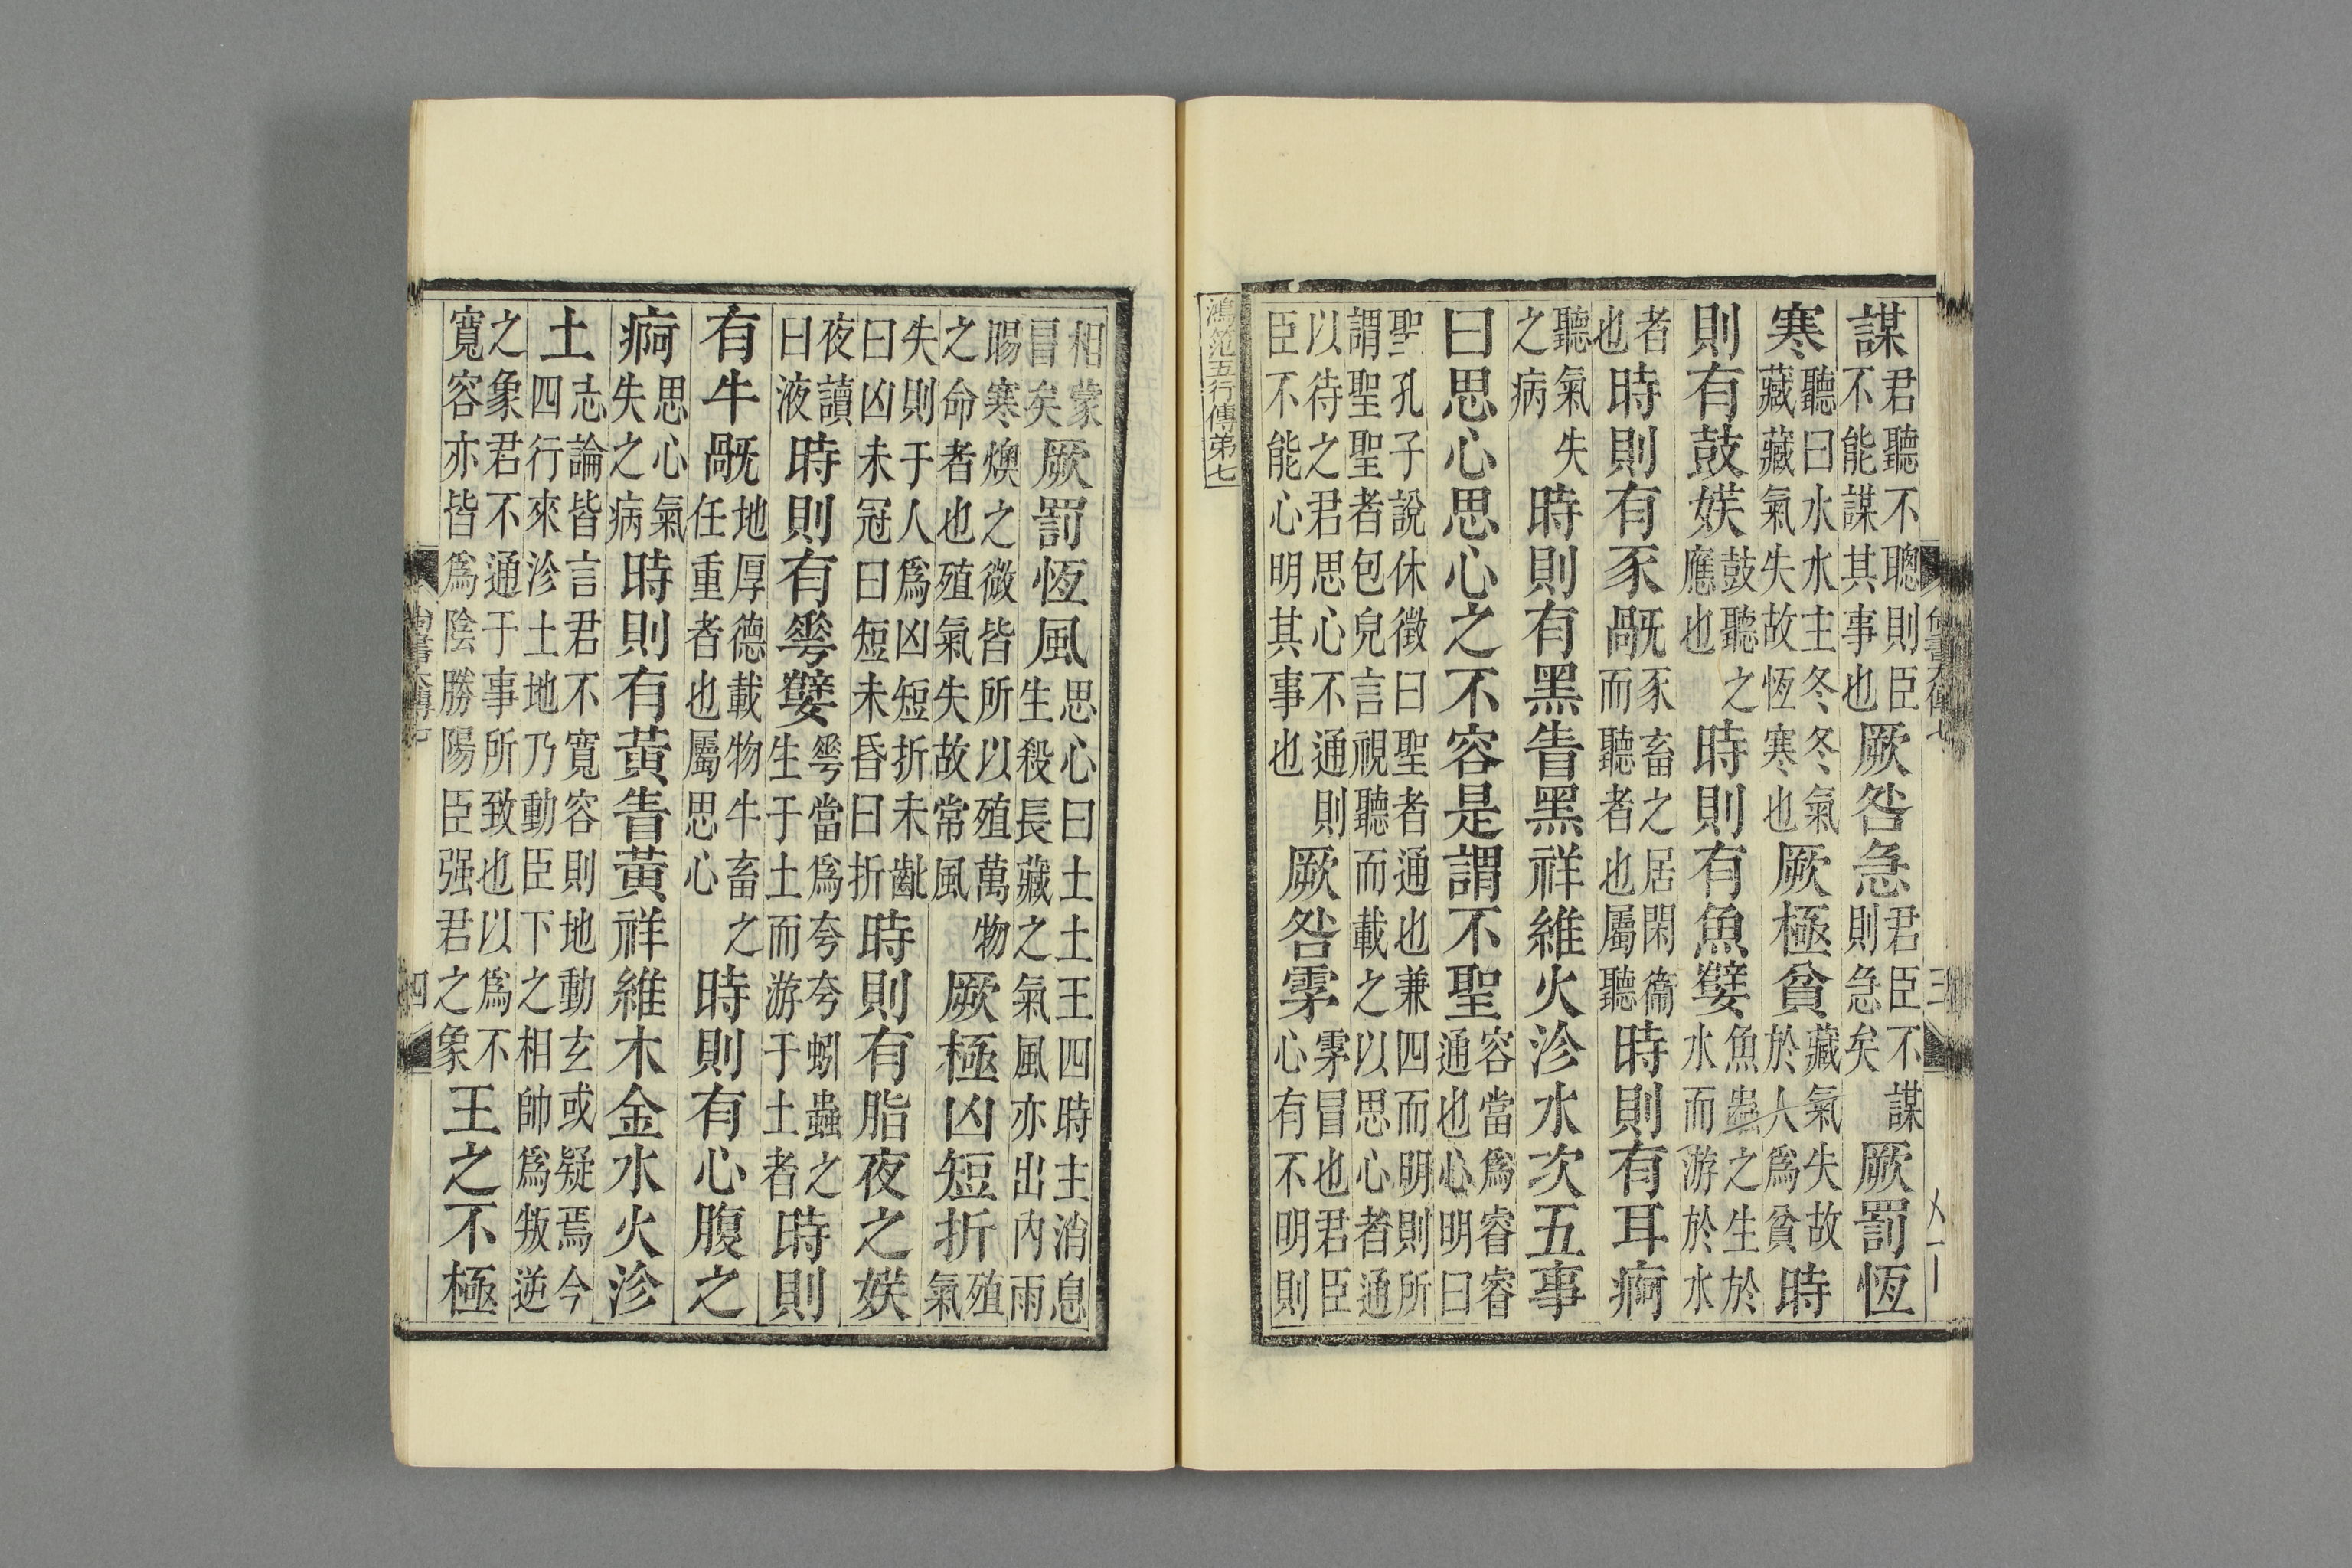 謀君聽不聰則臣不能謀其事也厥咎急君臣不謀則急矣厥罰恆
寒聽曰水水主冬冬氣藏藏氣失故恆寒也厥極貧藏氣失故於人爲貧時
則有鼓娱鼓聽之應也時則有魚孼魚蟲之生於水而游於水
者也時則有豕旤豕畜之居閑衞而聽者也屬聽時則有耳痾
聽氣失之病時則有黑眚黑祥維火沴水次五事
曰思心思心之不容是謂不聖容當爲睿睿通也心明曰
聖孔子說休徵曰聖者通也兼四而明則所謂聖聖者包皃言視聽而載之以思心者通
以待之君思心不通則臣不能心明其事也厥咎雺雺冒也君臣心有不明則
鴻範五行傳弟七
相蒙冒矣厥罰恆風思心曰土土王四時主消息生殺長藏之氣風亦出內雨
暘寒燠之微皆所以殖萬物之命者也殖氣失故常風厥極凶短折殖氣
失則于人爲凶短折未齔曰凶未冠曰短未昏曰折時則有脂夜之娱
夜讀曰液時則有𠌶孼𠌶當爲夸夸蚓蟲之生于土而游于土者時則
有牛旤地厚德載物牛畜之任重者也屬思心時則有心腹之
痾思心氣失之病時則有黃眚黃祥維木金水火沴
土志論皆言君不寬容則地動玄或疑焉今四行來沴土地乃動臣下之相帥爲叛逆
之象君不通于事所致也以爲不寬容亦皆爲陰勝陽臣强君之象王之不極